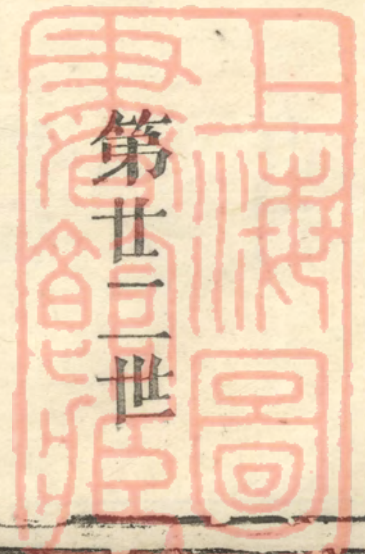 第廿二世
上海圖
書館藏